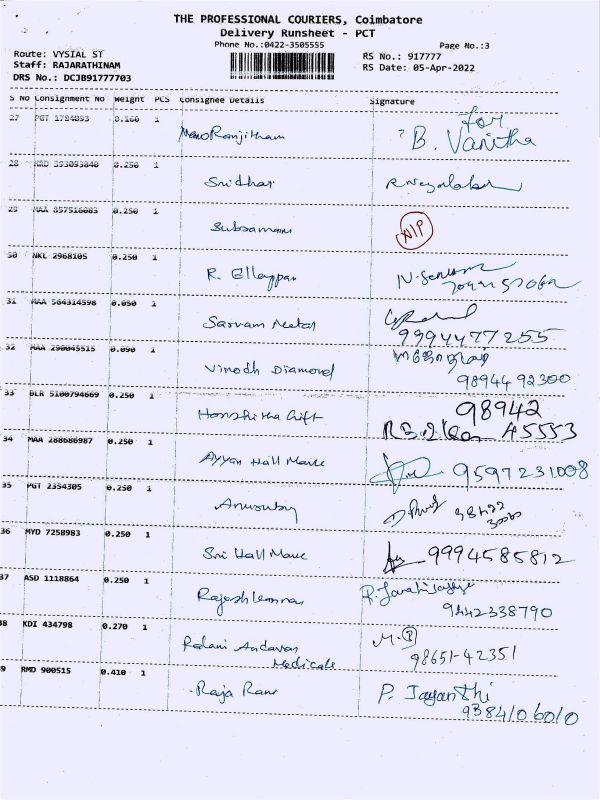 THE PROFESSIONAL COURIERS, Coimbatore
Delivery Runsheet - PCT
Phone No.:0422-3505555
Page No.:3
Route: VYSIAL ST
RS No.: 917777
Staff: RAJARATHINAM
RS Date: 05-Apr-2022
DRS No.: DCJB91777703
S No Consignment No Weight PCS Consignee Details Signature
27 PGT 1784893 0.160 1 Ranjitham for B. Vanitha
28 393093840 0.250 1 Sridhar
29 MAA 857516083 0.250 1
30 NKL 2968105 0.250 1 R. Ellappan
31 MAA 564314598 0.050 1 Sarvam Metal
9994477255
32 MAA 290045515 0.090 1 Vinodh Diamond
98944 92300
33 BLR 5100794669 0.250 1 Gift 98942
45553
34 MAA 288686987 0.250 1 Ayyan Hall Mark 9597231008
35 PGT 2354305 0.250 1
36 MYD 7258983 0.250 1 Sri Hall Mark 9994585812
37 ASD 1118864 0.250 1
9442338790
38 KDI 434798 0.270 1 Palani Andavar
Medicals 98651-42351
39 RMD 900515 0.410 1 Raja Rani P. Jayanthi
9384106010